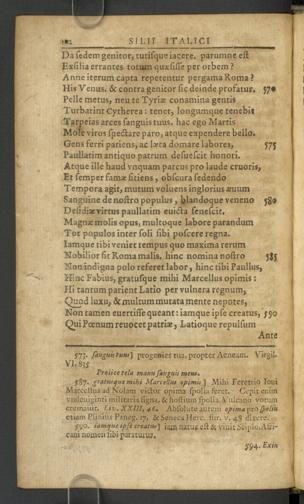 SILII ITALICI
Da sedem genitor, tutisque iacere. parumne est
Exsilia errantes totum quæsisse per orbem?
Anne iterum capta repetentur pergama Roma?
His Venus. & contra genitor sic deinde profatur. 570
Pelle metus, neu te Tyriæ conamina gentis
Turbarint Cytherea: tenet, longumque tenebit
Tarpeias arces sanguis tuus. hac ego Martis
Mole viros spectare paro, atque expendere bello.
Gens ferri patiens, ac læta domare labores, 575
Paullatim antiquo patrum desuescit honori.
Atque ille haud vnquam parcus pro laude cruoris,
Et semper famæ sitiens, obscura sedendo
Tempora agit, mutum voluens inglorius æuum
Sanguine de nostro populus, blandoque veneno 580
Desidiæ virtus paullatim euicta senescit.
Magnæ molis opus, multoque labore parandum
Tot populos inter soli sibi poscere regna.
Iamque tibi veniet tempus quo maxima rerum
Nobilior sit Roma malis. hinc nomina nostro 585
Non indigna polo referet labor, hinc tibi Paullus,
Hinc Fabius, gratusque mihi Marcellus opimis:
Hi tantum parient Latio per vulnera regnum,
Quod luxu, & multum mutata mente nepotes,
Non tamen euertisse queant: iamque ipse creatus, 590
Qui Pœnum reuocet patriæ, Latioque repulsum
Ante
573. sanguis tuus] progenies tua. propter Aeneam. Virgil.
VI. 835
Proiice tela manu sanguis meus.
587. gratusque mihi Marcellus opimis] Mihi Feretrio Ioui
Marcellus ad Nolam victor opima spolia feret. Cepit enim
vndeuiginti militaria signa, & hostium spolia Vulcano votum
cremauit. Liv. XXIII, 46. Absolute autem opima pro spoliis
etiam Plinius Paneg. 17. & Seneca Herc. fur. v. 48 dixere.
590. iamque ipse creatus] iam natus est & vivit Scipio. Afri-
cani nomen sibi paraturus.
594. Exin